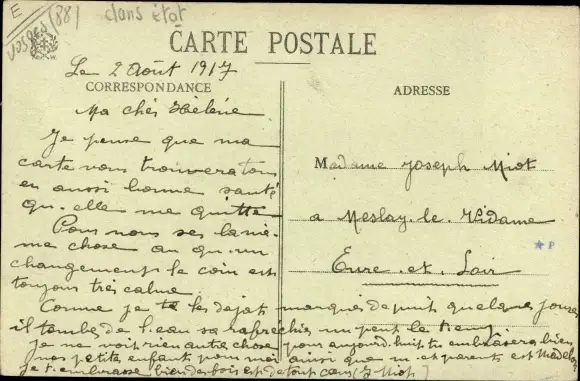 E
Vosges (88) dans état
CARTE POSTALE
Le 2 Août 1917
CORRESPONDANCE
Ma chér Hélène
Je pense que ma
carte vous trouvera tous
en aussi bonne santé
qu.elle me quitte
Pour nous ses la mê-
me chose au qu.un
changement le coin est
toujour très calme
Comme je te les dejat marques depuit quelques jours
il tombe de l'eau sa rafrechie un peut le temp.
je ne voit rien autre chose pour aujourd.huit tu embrâsera bien
nos petits enfants pour moi ainsi que m. et parents est
je t.embrasse bien des fois est de tout cœur (J. Miot)
ADRESSE
Madame Joseph Miot
a Meslay. le. Vidame
P
Eure. et. Loir